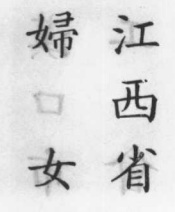 江西省
婦女